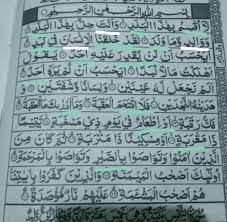 بِسْمِ اللهِ الرَّحْمٰنِ الرَّحِيْمِ
لَآ اُقْسِمُ بِهٰذَا الْبَلَدِ وَاَنْتَ حِلٌّۢ بِهٰذَا الْبَلَدِ
وَوَالِدٍ وَّمَا وَلَدَ لَقَدْ خَلَقْنَا الْاِنْسَانَ فِيْ كَبَدٍ
اَيَحْسَبُ اَنْ لَّنْ يَّقْدِرَ عَلَيْهِ اَحَدٌ يَقُوْلُ
اَهْلَكْتُ مَالًا لُّبَدًا اَيَحْسَبُ اَنْ لَّمْ يَرَهٗٓ اَحَدٌ
اَلَمْ نَجْعَلْ لَّهٗ عَيْنَيْنِ وَلِسَانًا وَّشَفَتَيْنِ وَ
هَدَيْنٰهُ النَّجْدَيْنِ فَلَا اقْتَحَمَ الْعَقَبَةَ وَمَآ اَدْرٰىكَ مَا الْعَقَبَةُ
فَكُّ رَقَبَةٍ اَوْ اِطْعَامٌ فِيْ يَوْمٍ ذِيْ مَسْغَبَةٍ يَّتِيْمًا
ذَا مَقْرَبَةٍ اَوْ مِسْكِيْنًا ذَا مَتْرَبَةٍ ثُمَّ كَانَ مِنَ
الَّذِيْنَ اٰمَنُوْا وَتَوَاصَوْا بِالصَّبْرِ وَتَوَاصَوْا بِالْمَرْحَمَةِ
اُولٰٓئِكَ اَصْحٰبُ الْمَيْمَنَةِ وَالَّذِيْنَ كَفَرُوْا بِاٰيٰتِنَا
هُمْ اَصْحٰبُ الْمَشْـَٔمَةِ عَلَيْهِمْ نَارٌ مُّؤْصَدَةٌ